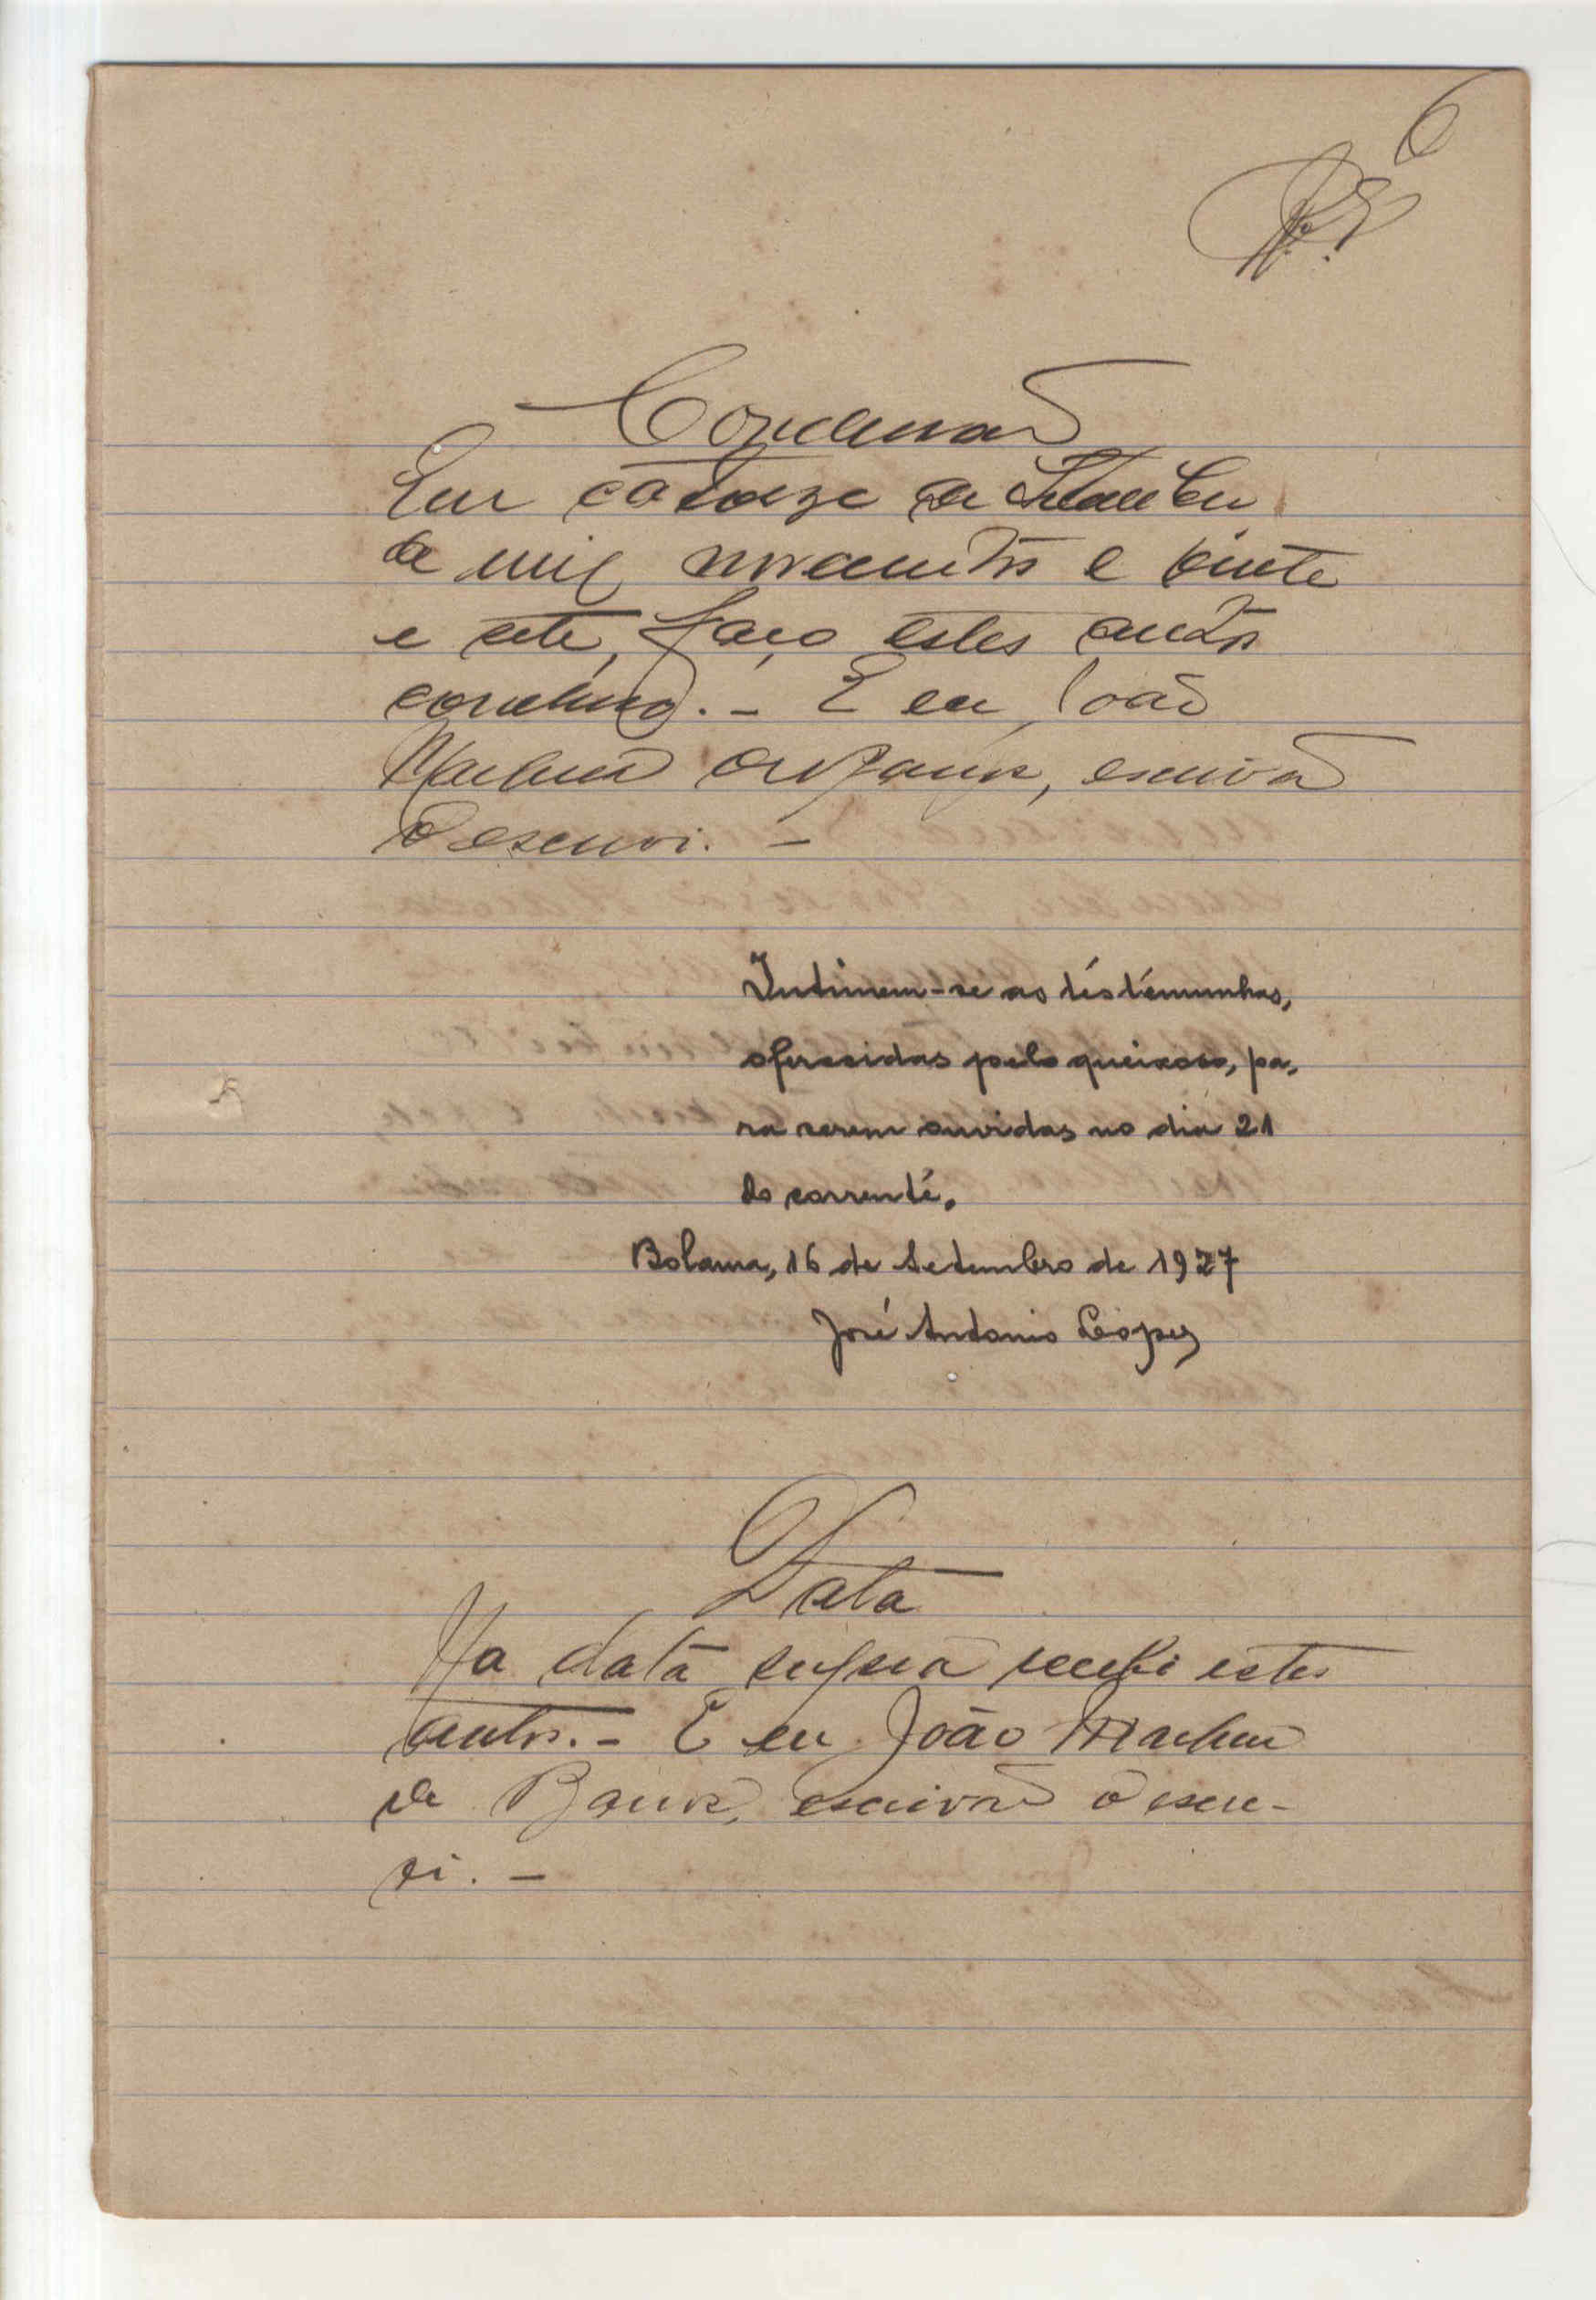 6
Conclusão
Em catorze de Setembro
de mil novecentos e vinte
e sete, faço estes autos
conclusos. - E eu, João
escrivão
o escrevi. -
Intimem-se as téstémunhas,
oferecidas pelo queixoso, pa-
ra serem ouvidas no dia 21
do corrente.
Bolama, 16 de Setembro de 1927
José Antonio Lopes
Data
Na data supra recebi estes
autos. - E eu João
de escrivão o escre-
vi. -